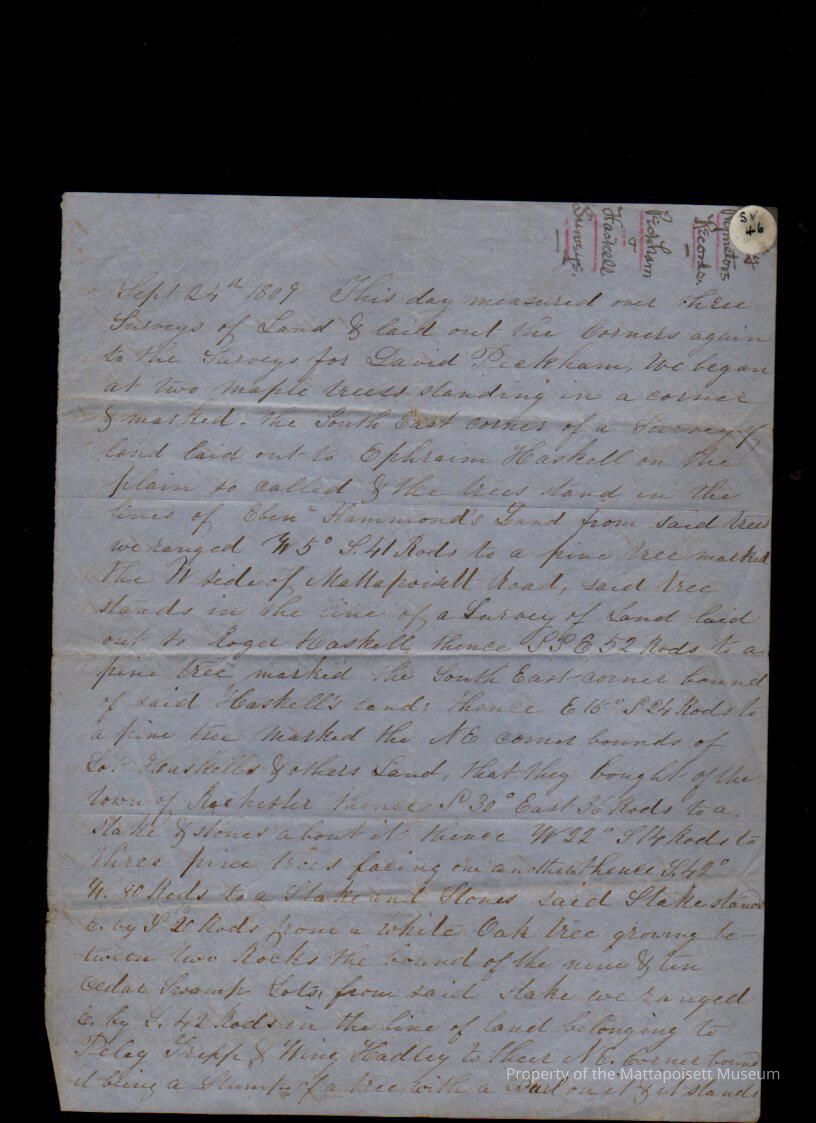 Proprietors
Records.
Peckham
&
Haskell
Surveys.
S V
46
Sept 24th 1809 This day measured over three
Surveys of Land & laid out the Corners again
to the Surveys for David Peckham, We began
at two maple trees standing in a corner
& marked. the South East corner of a Survey of
land laid out to Ephraim Haskell on the
plain so called & the trees stand in the
lines of Ebenr Hammond's Land from said trees
we ranged W 5° S. 41 Rods to a pine tree marked
the W side of Mattapoisett Road, said tree
stands in the line of a Survey of Land laid
out to Roger Haskell thence E 52 Rods to a
pine tree marked the South East corner bound
of said Haskell's land; thence E 15° S 24 Rods to
a pine tree marked the NE corner bounds of
Lot Haskells & others Land, that they bought of the
town of Rochester thence S 30° East 36 Rods to a
stake & stones about it thence W 22° S 14 Rods to
three pine trees facing one another thence S. 42°
W. 80 Rods to a Stake and Stones said Stake stands
E. by S 20 Rods from a white Oak tree growing be-
tween two Rocks the bound of the nine & ten
cedar Swamp Lots, from said stake we ranged
E. by S. 42 Rods in the line of land belonging to
Peleg Tripp & Wing Hadley to their N.E. Corner bound
it being a Stump of a tree with a on it & it stands
Property of the Mattapoisett Museum